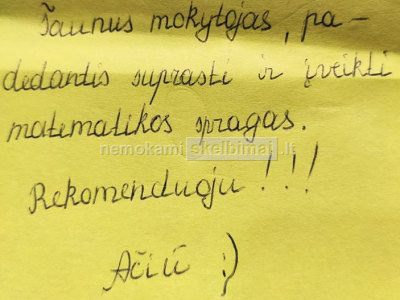 Šaunus mokytojas, pa-
dedantis suprasti ir įveikti
matematikos spragas.
nemokami skelbimai.lt
Rekomenduoju!!!
Ačiū :)